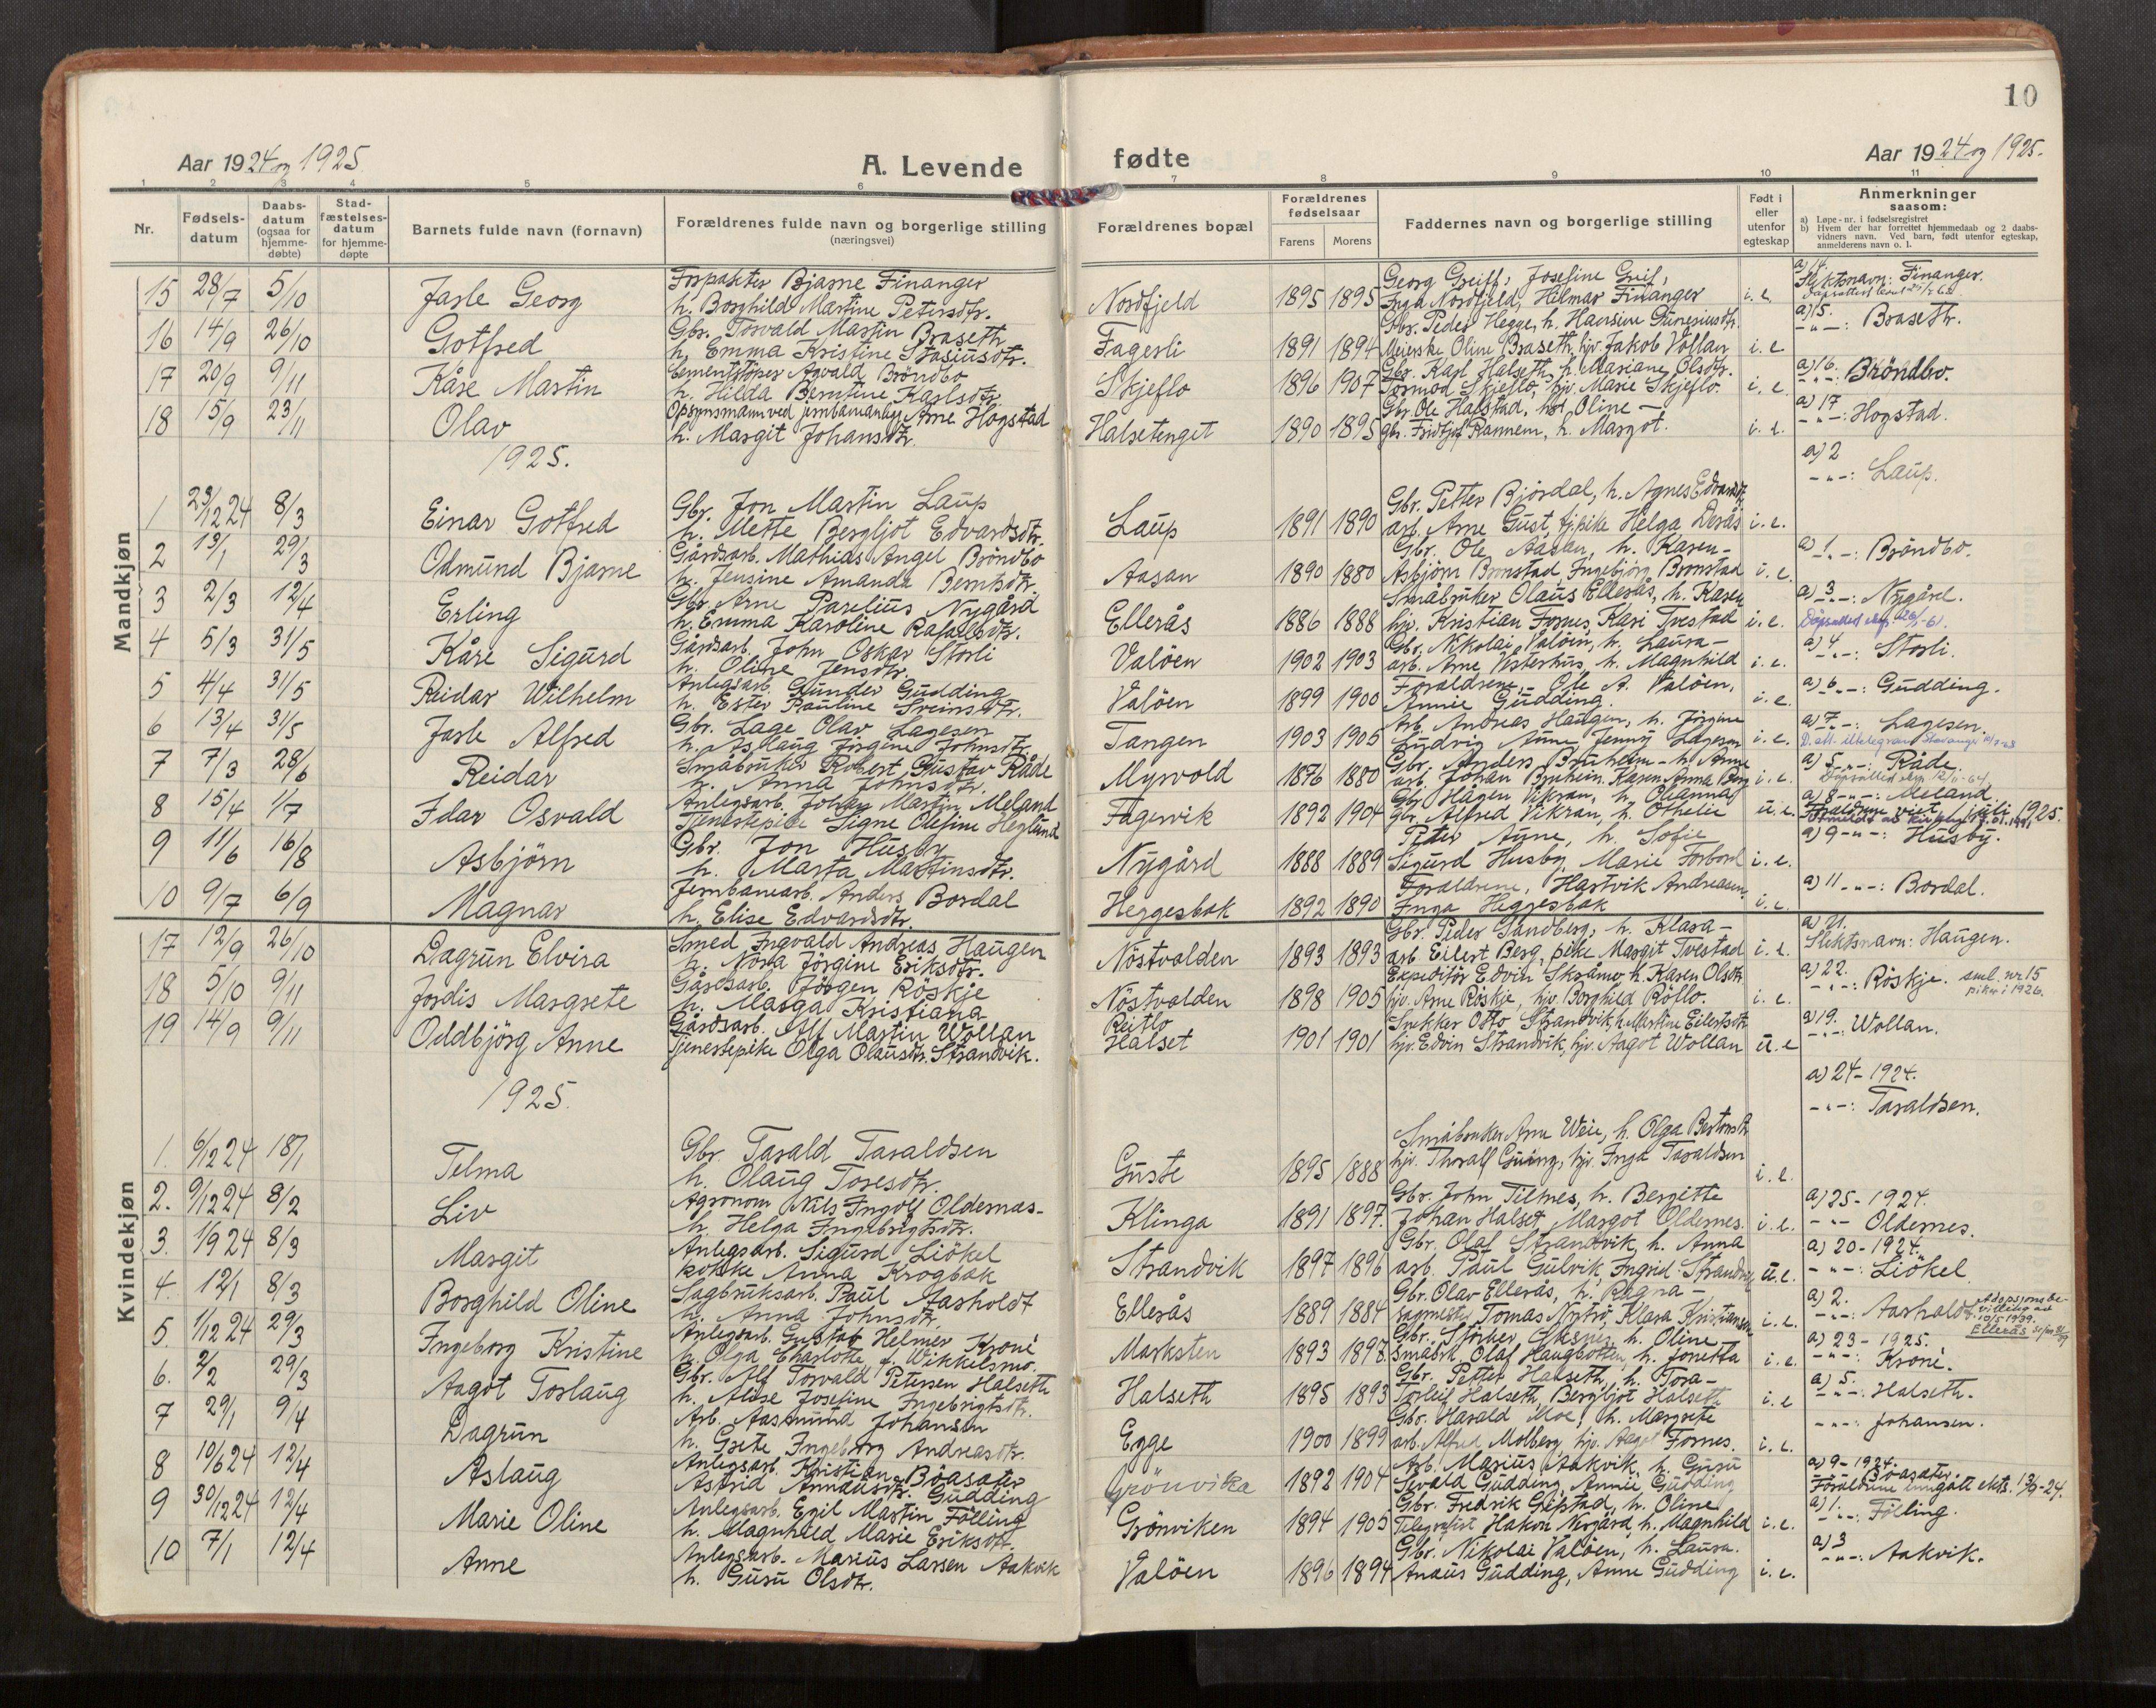 10
Aar 1924 og 1925
A. Levende fødte
Aar 1924 og 1925.
1 2 3 4 5 6 7 8 9 10 11
Nr.
Fødsels-datum
Daabs-datum (ogsaa for hjemme-døbte)
Stad-fæstelses-datum for hjemme-døpte
Barnets fulde navn (fornavn)
Forældrenes fulde navn og borgerlige stilling (næringsvei)
Forældrenes bopæl
Forældrenes fødselsaar
Farens Morens
Faddernes navn og borgerlige stilling
Født i eller utenfor egteskap
Anmerkninger saasom:
a) Løpe-nr. i fødselsregistret
b) Hvem der har forrettet hjemmedaab og 2 daabs-vidners navn. Ved barn, født utenfor egteskap, anmelderens navn o. l.
Mandkjøn
15 28/7 5/10 Jarle Georg
Forpakter Bjarne Finanger
h. Borghild Martine Petersdtr.
Nordfjeld 1895 1895
Georg Greiff, Josefine Greif,
Inga Nordfjeld, Hilmar Finanger
i. e.
a) 14.
Slektsnavn: Finanger.
16 14/9 26/10 Gotfred
Gbr. Torvald Martin Braseth
h. Emma Kristine Stasiusdtr.
Fagerli 1891 1894
Gbr. Peder Hegge, h. Hansine
Meierske Oline Braseth, hjv. Jakob Vollan
i. e
a) 15.
-"-: Braseth.
17 20/9 9/11 Kåre Martin
Cementstøper Agvald Bröndbo
h. Hilda Berntine Karlsdtr.
Skjeflo 1896 1907
Gbr. Karl Halseth, h. Mariane Olsdtr.
Tormod Skjeflo, hjv. Marie Skjeflo.
i. e.
a) 16.
-"-: Bröndbo.
18 15/9 23/11 Olav
Opsynsmann ved jernbaneanlegg Arne Hogstad
h. Margit Johansdtr.
Halsetenget 1890 1895
Gbr. Ole Halstad, h. Oline -
gbr. Fridtjof Rannem, h. Margot.
i. e.
a) 17
-"-: Hogstad.
1925.
1 23/12 24 8/3 Einar Gotfred
Gbr. Jon Martin Laup
h. Mette Bergljot Edvardsdtr.
Laup 1891 1890
Gbr. Petter Bjørdal, h. Agnes Edvardsdtr.
arb. Arne Gust, tj.pike Helga Derås
i. e.
a) 2
-"-: Laup.
2 13/1 29/3 Odmund Bjarne
Gårdsarb. Mathias Angel Bröndbo
h. Jensine Amanda Berntsdtr.
Aasan 1890 1880
Gbr. Ole Aasan, h. Karen -
Asbjörn Bronstad, Ingebjörg Bronstad
i. e.
a) 1 -"-: Bröndbo.
3 2/3 12/4 Erling
Gbr. Arne Parelius Nygård
h. Emma Karoline Rafaelsdtr.
Ellerås 1886 1888
Småbruker Olaus Ellerås, h. Karen
hjv. Kristian Fornes, Kari Tvestad
i. e.
a) 3 -"-: Nygård.
4 5/3 31/5 Kåre Sigurd
Gårdsarb. John Oskar Storli
h. Oline Jensdtr.
Valöen 1902 1903
Gbr. Nikolai Valöen, h. Laura -
arb. Arne Vesterhus, h. Magnhild
i. e.
a) 4 -"-: Storli.
5 4/4 31/5 Reidar Wilhelm
Anlegsarb. Gunder Gudding
h. Ester Pauline Sveinsdtr.
Valöen 1899 1900
Foraldrene, Ole A. Valöen,
Annie Gudding.
i. e.
a) 6 -"-: Gudding.
6 13/4 31/5 Jarle Alfred
Gbr. Lage Olav Lagesen
h. Aslaug Jörgine Johnsdtr.
Tangen 1903 1905
Arb. Andreas Haugen, h. Jörgine
Ludvig Aune, Jenny Lagesen
i. e.
a) 7 -"-: Lagesen.
7 7/3 28/6 Reidar
Småbruker Robert Gustav Råde
h. Anna Johnsdtr.
Myrvold 1876 1880
Gbr. Anders Bruheim - h. Anne
arb. Johan Bruheim, Karen Anna Berg
i. e.
a) 5 -"-: Råde.
8 15/4 1/7 Idar Osvald
Anlegsarb. Johan Martin Meland
Tjenestepike Signe Olefine Heglund
Fagervik 1892 1904
Gbr. Hågen Vikran, h. Olianna
Gbr. Alfred Vikran, h. Othelie
u. e.
a) 8 -"-: Meland.
Foraldrene viet juli 1925.
9 11/6 16/8 Asbjörn
Gbr. Jon Husby
h. Marta Martinsdtr.
Nygård 1888 1889
Peter Aune, h. Sofie
Sigurd Husby, Marie Forbord
i. e.
a) 9 -"-: Husby.
10 9/7 6/9 Magnar
Jernbanearb. Anders Bordal
h. Elise Edvardsdtr.
Heggesbak 1892 1890
Foraldrene, Hartvik Andreasen,
Inga Heggesbak
i. e.
a) 11 -"-: Bordal.
Kvindekjøn
17 12/9 26/10 Dagrun Elvira
Smed Ingvald Andreas Haugen
h. Nora Jörgine Eriksdtr.
Nöstvolden 1893 1893
Gbr. Peder Sandberg, h. Klara -
arb. Eilert Berg, pike Margit Tvestad
i. e.
a) 21.
Slektsnavn: Haugen.
18 5/10 9/11 Jordis Margrete
Gårdsarb. Jörgen Röskje
h. Marga Kristiana
Nöstvolden 1898 1905
Expeditör Edvin Skrämo, h. Karen Olsdtr.
hjv. Arne Röskje, hjv. Borghild Röllo.
i. e.
a) 22.
-"-: Röskje. sml. nr 15 piker i 1926.
19 14/9 9/11 Oddbjörg Anne
Gårdsarb. Alf Martin Wollan
Tjenestepike Olga Olausdtr. Strandvik.
Reitlo
Halset 1901 1901
Snekker Otto Strandvik, h. Martine Eilertsdtr
hjv. Edvin Strandvik, hjv. Aagot Wollan
u. e
a) 19.
-"-: Wollan.
1925.
1. 6/12 24 18/1 Telma
Gbr. Tarald Taraldsen
h. Olaug Toresdtr.
Guste 1895 1888
Småbruker Arne Weie, h. Olga
hjv. Thoralf Guin, hjv. Inga Taraldsen
i. e.
a) 24 - 1924.
-"-: Taraldsen.
2. 9/12 24 8/2 Liv
Agronom Nils Ingolf Oldernes -
h. Helga Ingebrigtsdtr.
Klinga 1891 1897.
Gbr. John Tilmes, h. Bergitte
Johan Halset, Margot Oldernes.
i. e.
a) 25 - 1924.
-"- Oldernes.
3. 1/9 24 8/3 Margit
Anlegsarb. Sigurd Liökel
kokke Anna Krogbak
Strandvik 1897 1896
Gbr. Olaf Strandvik, h. Anna
arb. Paul Gulvik, Ingrid Strandvik
u. e.
a) 20 - 1924.
-"-: Liökel.
4. 12/1 8/3 Borghild Oline
Sagbruksarb. Paul Aarholdt
h. Anna Johnsdtr.
Ellerås 1889 1884
Gbr. Olav Ellerås, h. Ragna -
sagmester Tomas Nyströ, Klara Kristiansen
i. e.
a) 2.
-"-: Aarholdt
Adopsjonsbevilling av 10/5 1939.
Ellerås
5. 1/12 24 29/3 Ingeborg Kristine
Anlegsarb. Gustav Helmer Krone
h. Olga Charlotte f. Wikkelsmo.
Marksten 1893 1897.
Gbr. Störker Aksnes, h. Oline
Småbr. Olaf Haugbotten, h. Jonetta
i. e.
a) 23 - 1925.
-"-: Krone.
6. 2/2 29/3 Aagot Torlaug
Gbr. Alf Torvald Petersen Halseth
h. Alise Josefine Ingebrigtsdtr.
Halseth 1895 1893
Gbr. Petter Halseth, h. Tora -
Torleif Halseth, Bergljot Halseth
i. e
a) 5.
-"-: Halseth.
7 29/1 9/4 Dagrun
Arb. Aasmund Johansen
h. Grete Ingeborg Andreasdtr.
Egge 1900 1899
Gbr. Harald Moe, h. Margrete
arb. Alfred Molberg, hjv. Aagot Fornes.
i. e.
-"-: Johansen.
8 10/6 24 12/4 Aslaug
Anlegsarb. Kristian Böasater
Astrid Annausdtr. Gudding
Grönvika 1892 1904
Arb. Marius Aakvik, h. Guru
Sevald Gudding, Annie Gudding
a) 9 - 1924.
Böasater.
Foraldrene inngått ekts. 13/9-24.
9 30/12 24 12/4 Marie Oline
Anlegsarb. Egil Martin Fölling
h. Magnhild Marie Eriksdtr.
Grönviken 1894 1905
Gbr. Fredrik Gipstad, h. Oline
Telegrafist Hakon Nergård, h. Magnhild
i. e.
a) 1.
-"-: Fölling.
10 7/1 12/4 Anne
Anlegsarb. Marius Larsen Aakvik
h. Guru Olsdtr.
Valöen 1896 1894
Gbr. Nikolai Valöen, h. Laura.
Anaus Gudding, Anne Gudding
i. e.
a) 3
-"-: Aakvik.